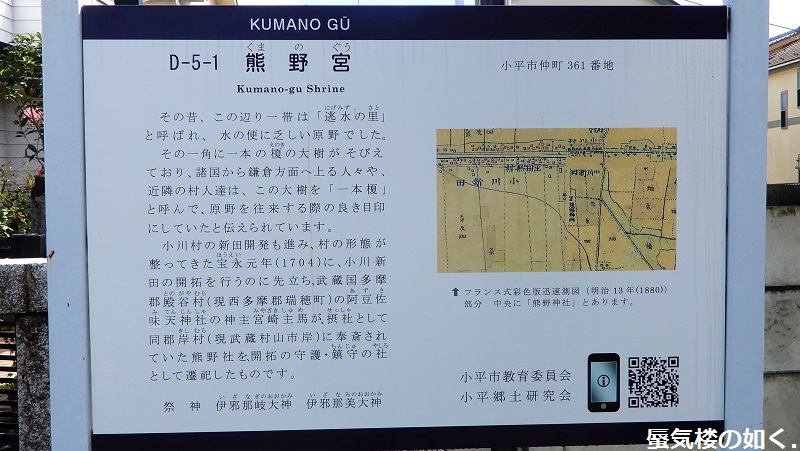 KUMANO GŪ
D-5-1 熊野宮
くま の ぐう
Kumano-gu Shrine
小平市仲町361番地
その昔、この辺り一帯は「逃水の里」
にげみず さと
と呼ばれ、水の便に乏しい原野でした。
その一角に一本の榎の大樹がそびえ
えのき
ており、諸国から鎌倉方面へ上る人々や、
近隣の村人達は、この大樹を「一本榎」
と呼んで、原野を往来する際の良き目印
にしていたと伝えられています。
小川村の新田開発も進み、村の形態が
整ってきた宝永元年(1704)に、小川新
ほうえい
田の開拓を行うのに先立ち、武蔵国多摩
郡殿谷村(現西多摩郡瑞穂町)の阿豆佐
とのがやむら あずさ
味天神社の神主宮崎主馬が、摂社として
みてんじんしゃ みやざきしゅめ せっしゃ
同郡岸村(現武蔵村山市岸)に奉斎され
きしむら
ていた熊野社を開拓の守護・鎮守の社
ちんじゅ やしろ
として遷祀したものです。
祭神 伊邪那岐大神 伊邪那美大神
いざなぎのおおかみ いざなみのおおかみ
⬆フランス式彩色版迅速測図(明治13年(1880))
部分 中央に「熊野神社」とあります。
小平市教育委員会
小平郷土研究会
蜃気楼の如く.